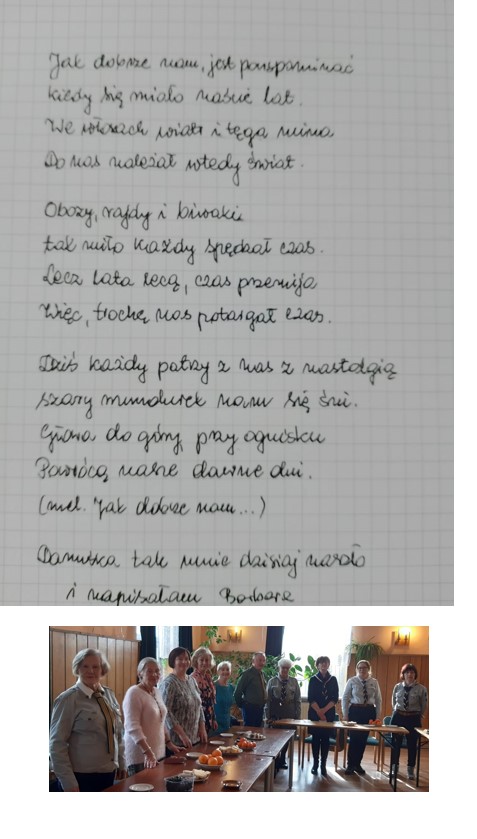 Jak dobrze nam, jest powspominać
kiedy się miało naście lat.
We włosach wiatr i tęga mina
Do nas należał wtedy świat.
Obozy, rajdy i biwaki
tak miło każdy spędzał czas.
Lecz lata lecą, czas przemija
Więc, trochę nas potargał czas.
Dziś każdy patrzy z nas z nastolgią
szary mundurek nam się śni.
Głowa do góry, przy ognisku
Powrócą nasze dawne dni.
(mel. Jak dobrze nam...)
Danuśka tak mnie dzisiaj
i napisałam Barbara